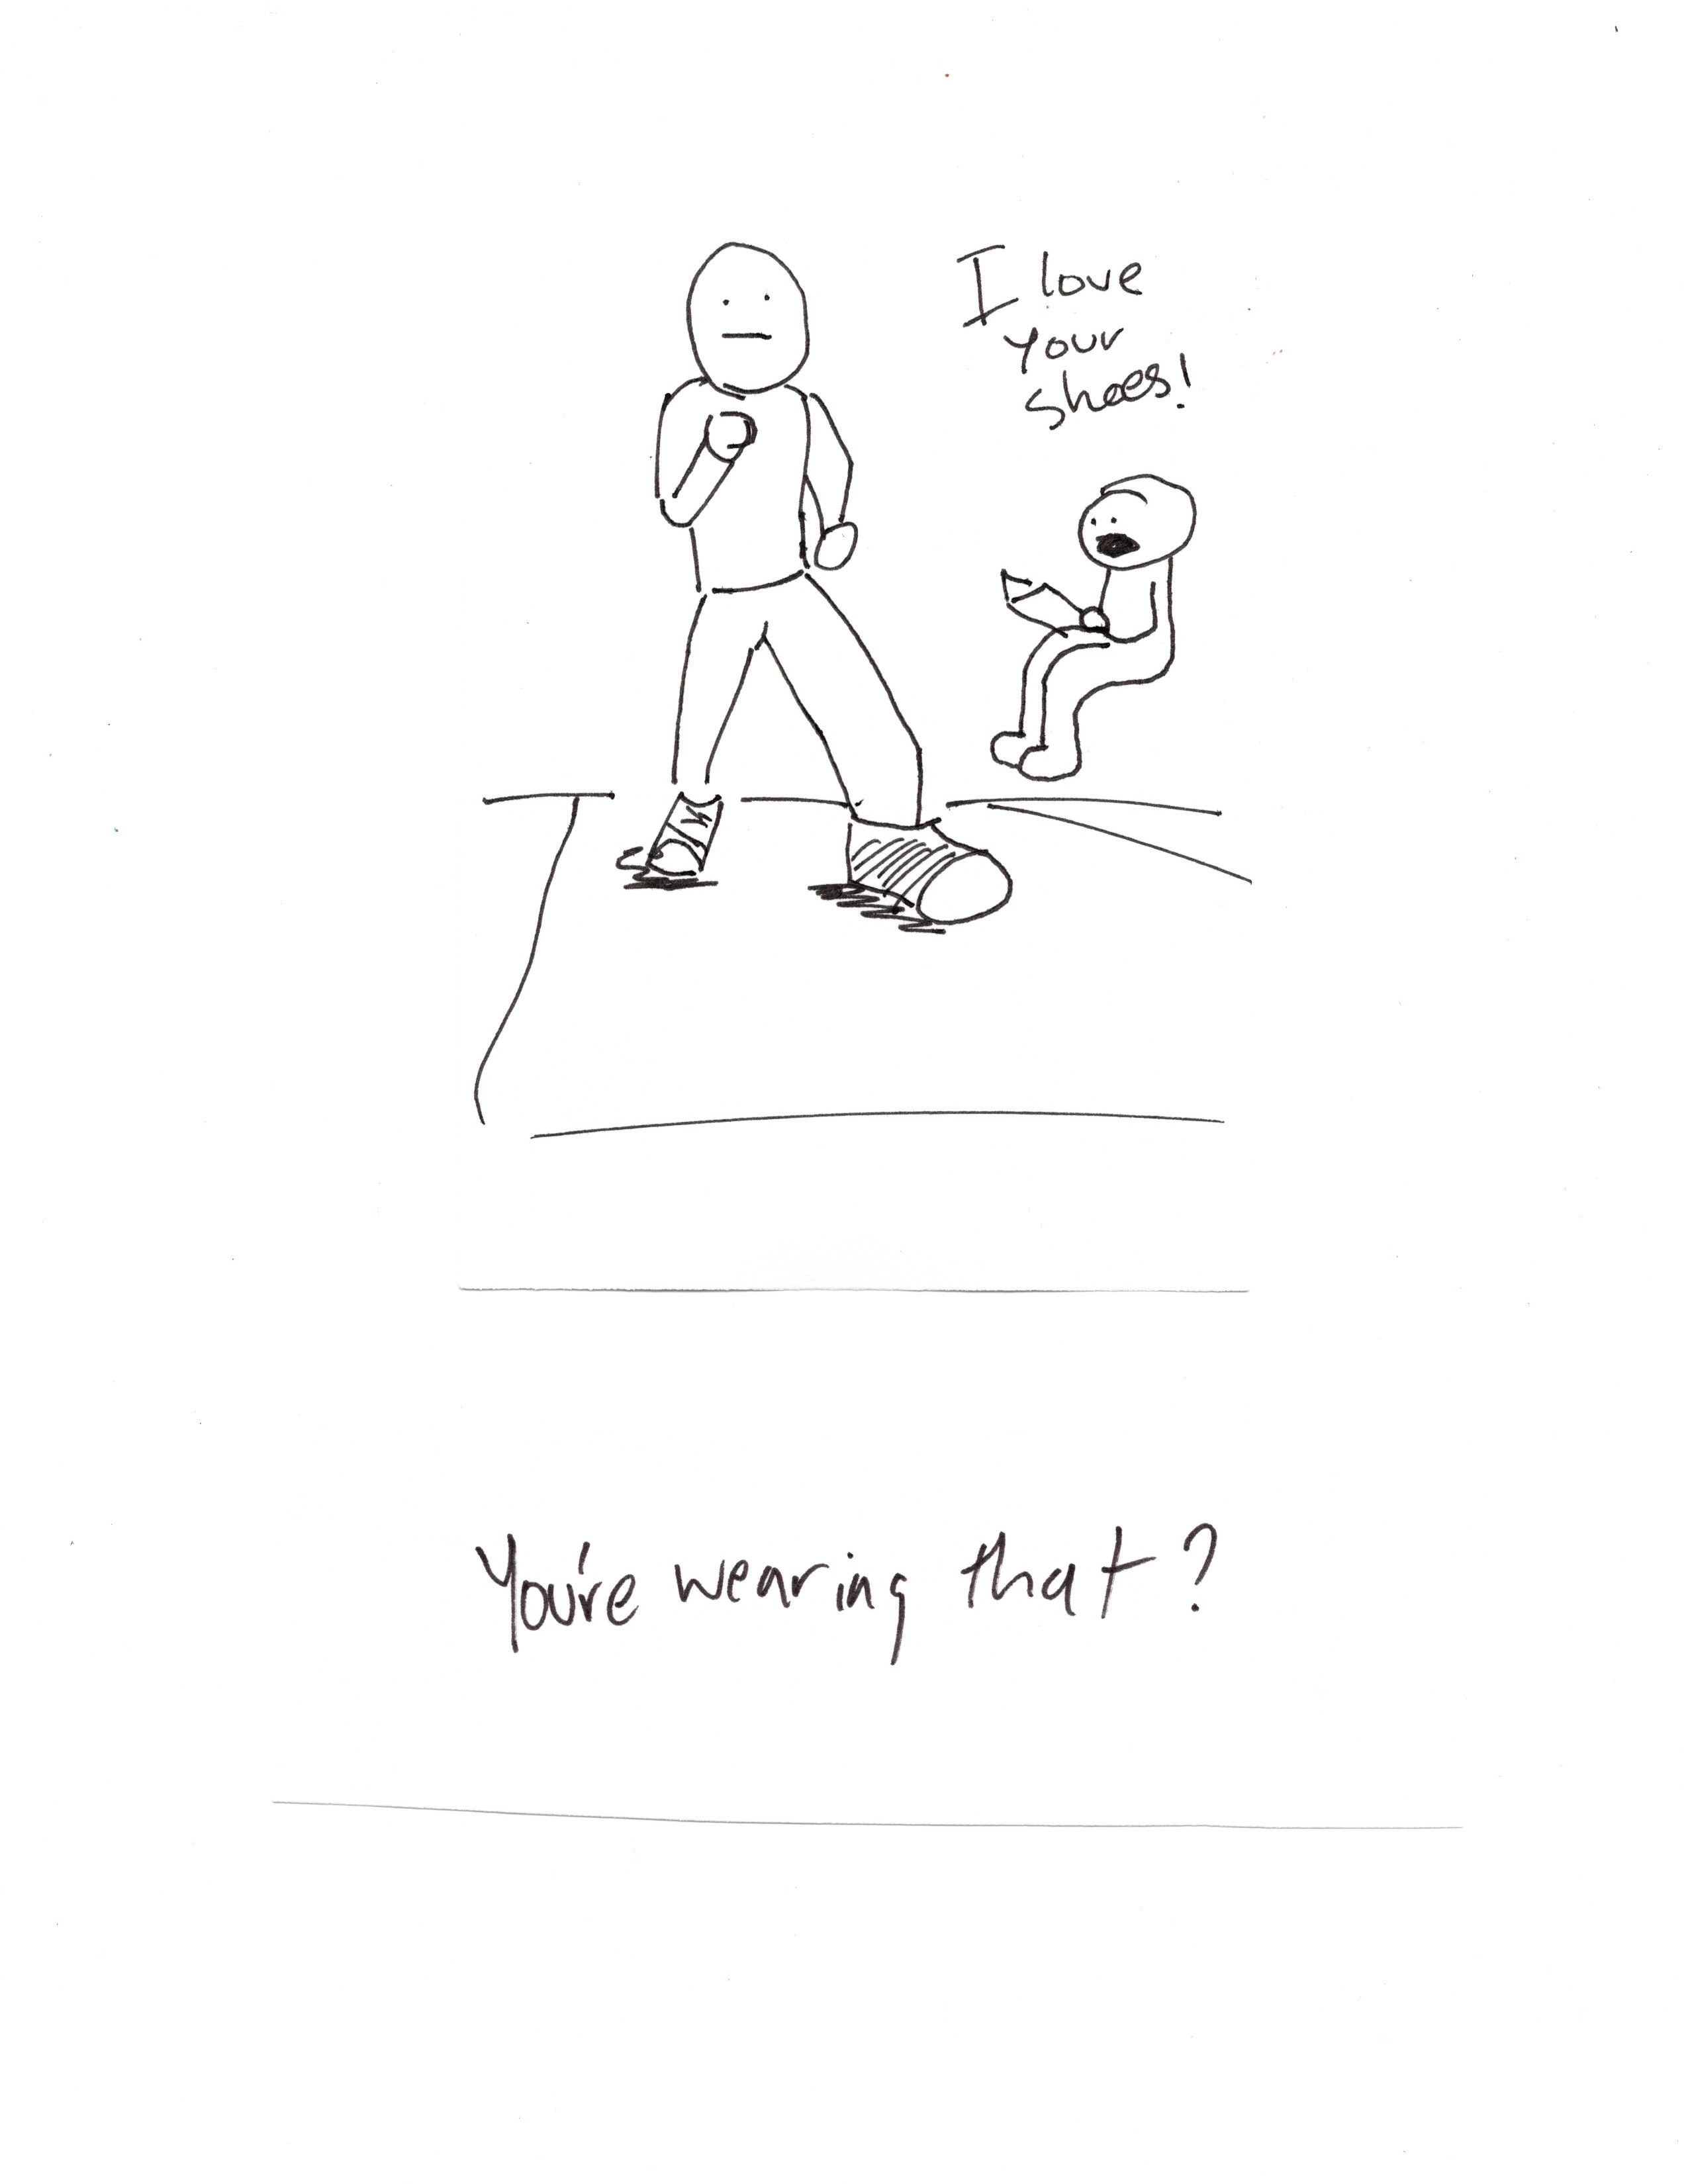 I love
your
shoes!
You're wearing that?